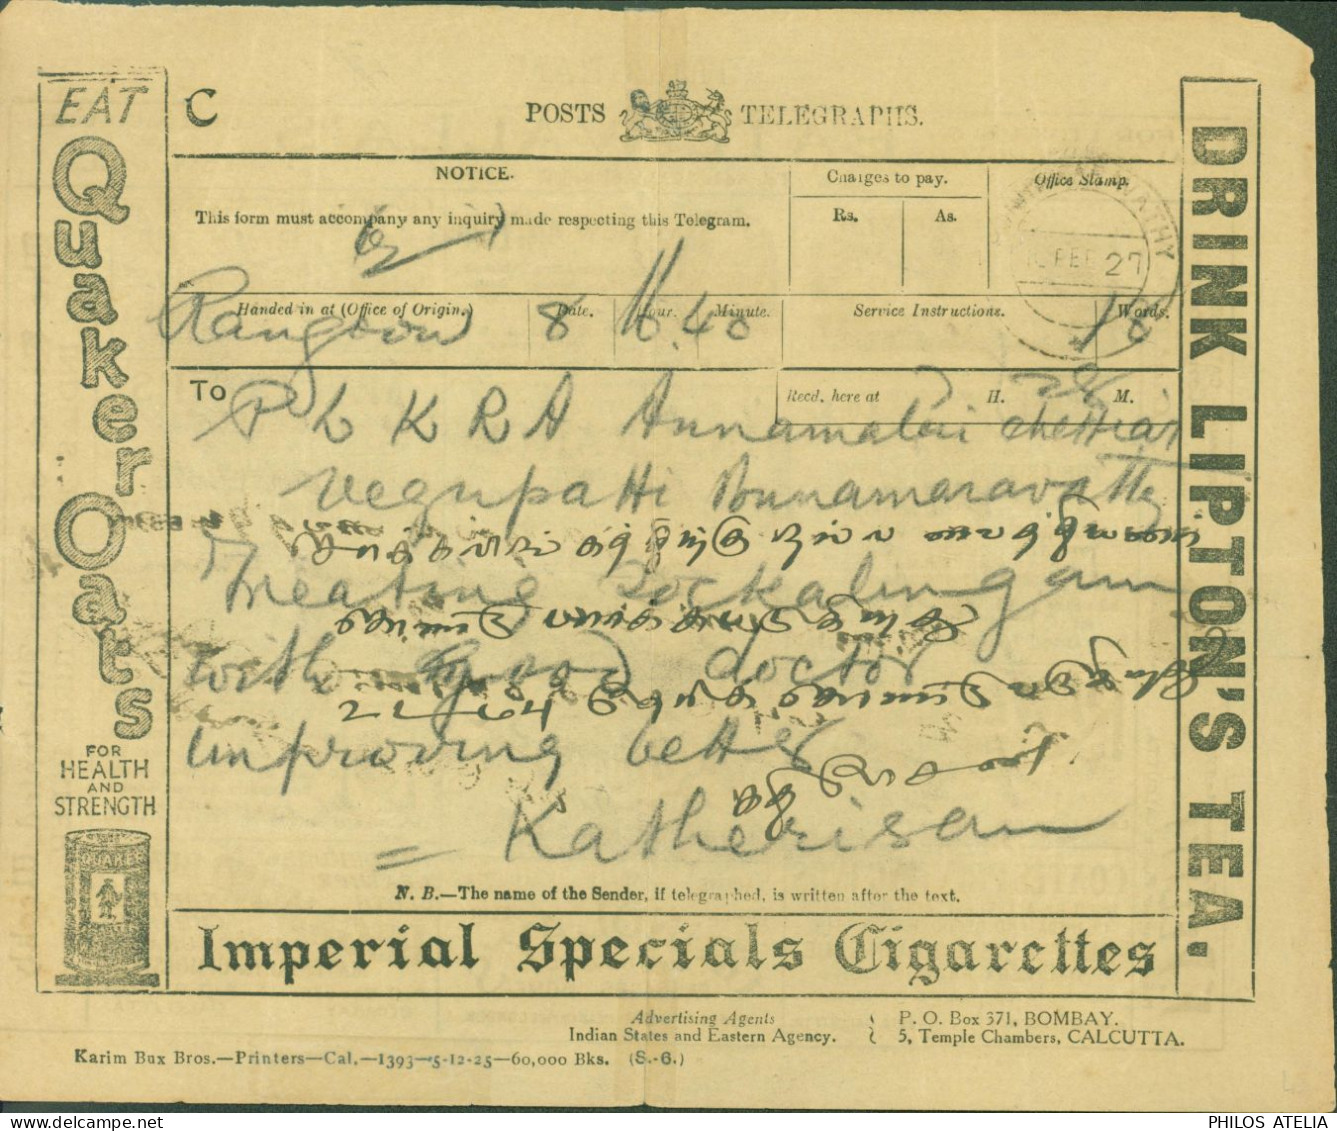 EAT
Quaker Oats
FOR
HEALTH
AND
STRENGTH
QUAKER
C
POSTS TELEGRAPHS.
NOTICE.
This form must accompany any inquiry made respecting this Telegram.
Charges to pay.
Rs. As.
Office Stamp.
FEB 27
Handed in at (Office of Origin.) Date. Hour. Minute. Service Instructions. Words.
Rangoon 8 16.40 18
To
Recd. here at H. M.
P L K R A Annamalai chettiar
Vegupatti Ponnamaravatty
சொக்கலிங்கத்துக்கு நல்ல வைத்தியனை
Treating Sockalingam
கொண்டு பார்க்கப்பட்டு
with good doctor
உடம்பு தேறிக் கொண்டு வருகிறது
improving better
கதிரேசன்
= Katherisan
N. B.—The name of the Sender, if telegraphed, is written after the text.
Imperial Specials Cigarettes
DRINK LIPTON'S TEA.
Advertising Agents
Indian States and Eastern Agency.
P. O. Box 371, BOMBAY.
5, Temple Chambers, CALCUTTA.
Karim Bux Bros.—Printers—Cal.—1393—5-12-25—60,000 Bks. (S.-6.)
PHILOS ATELIA